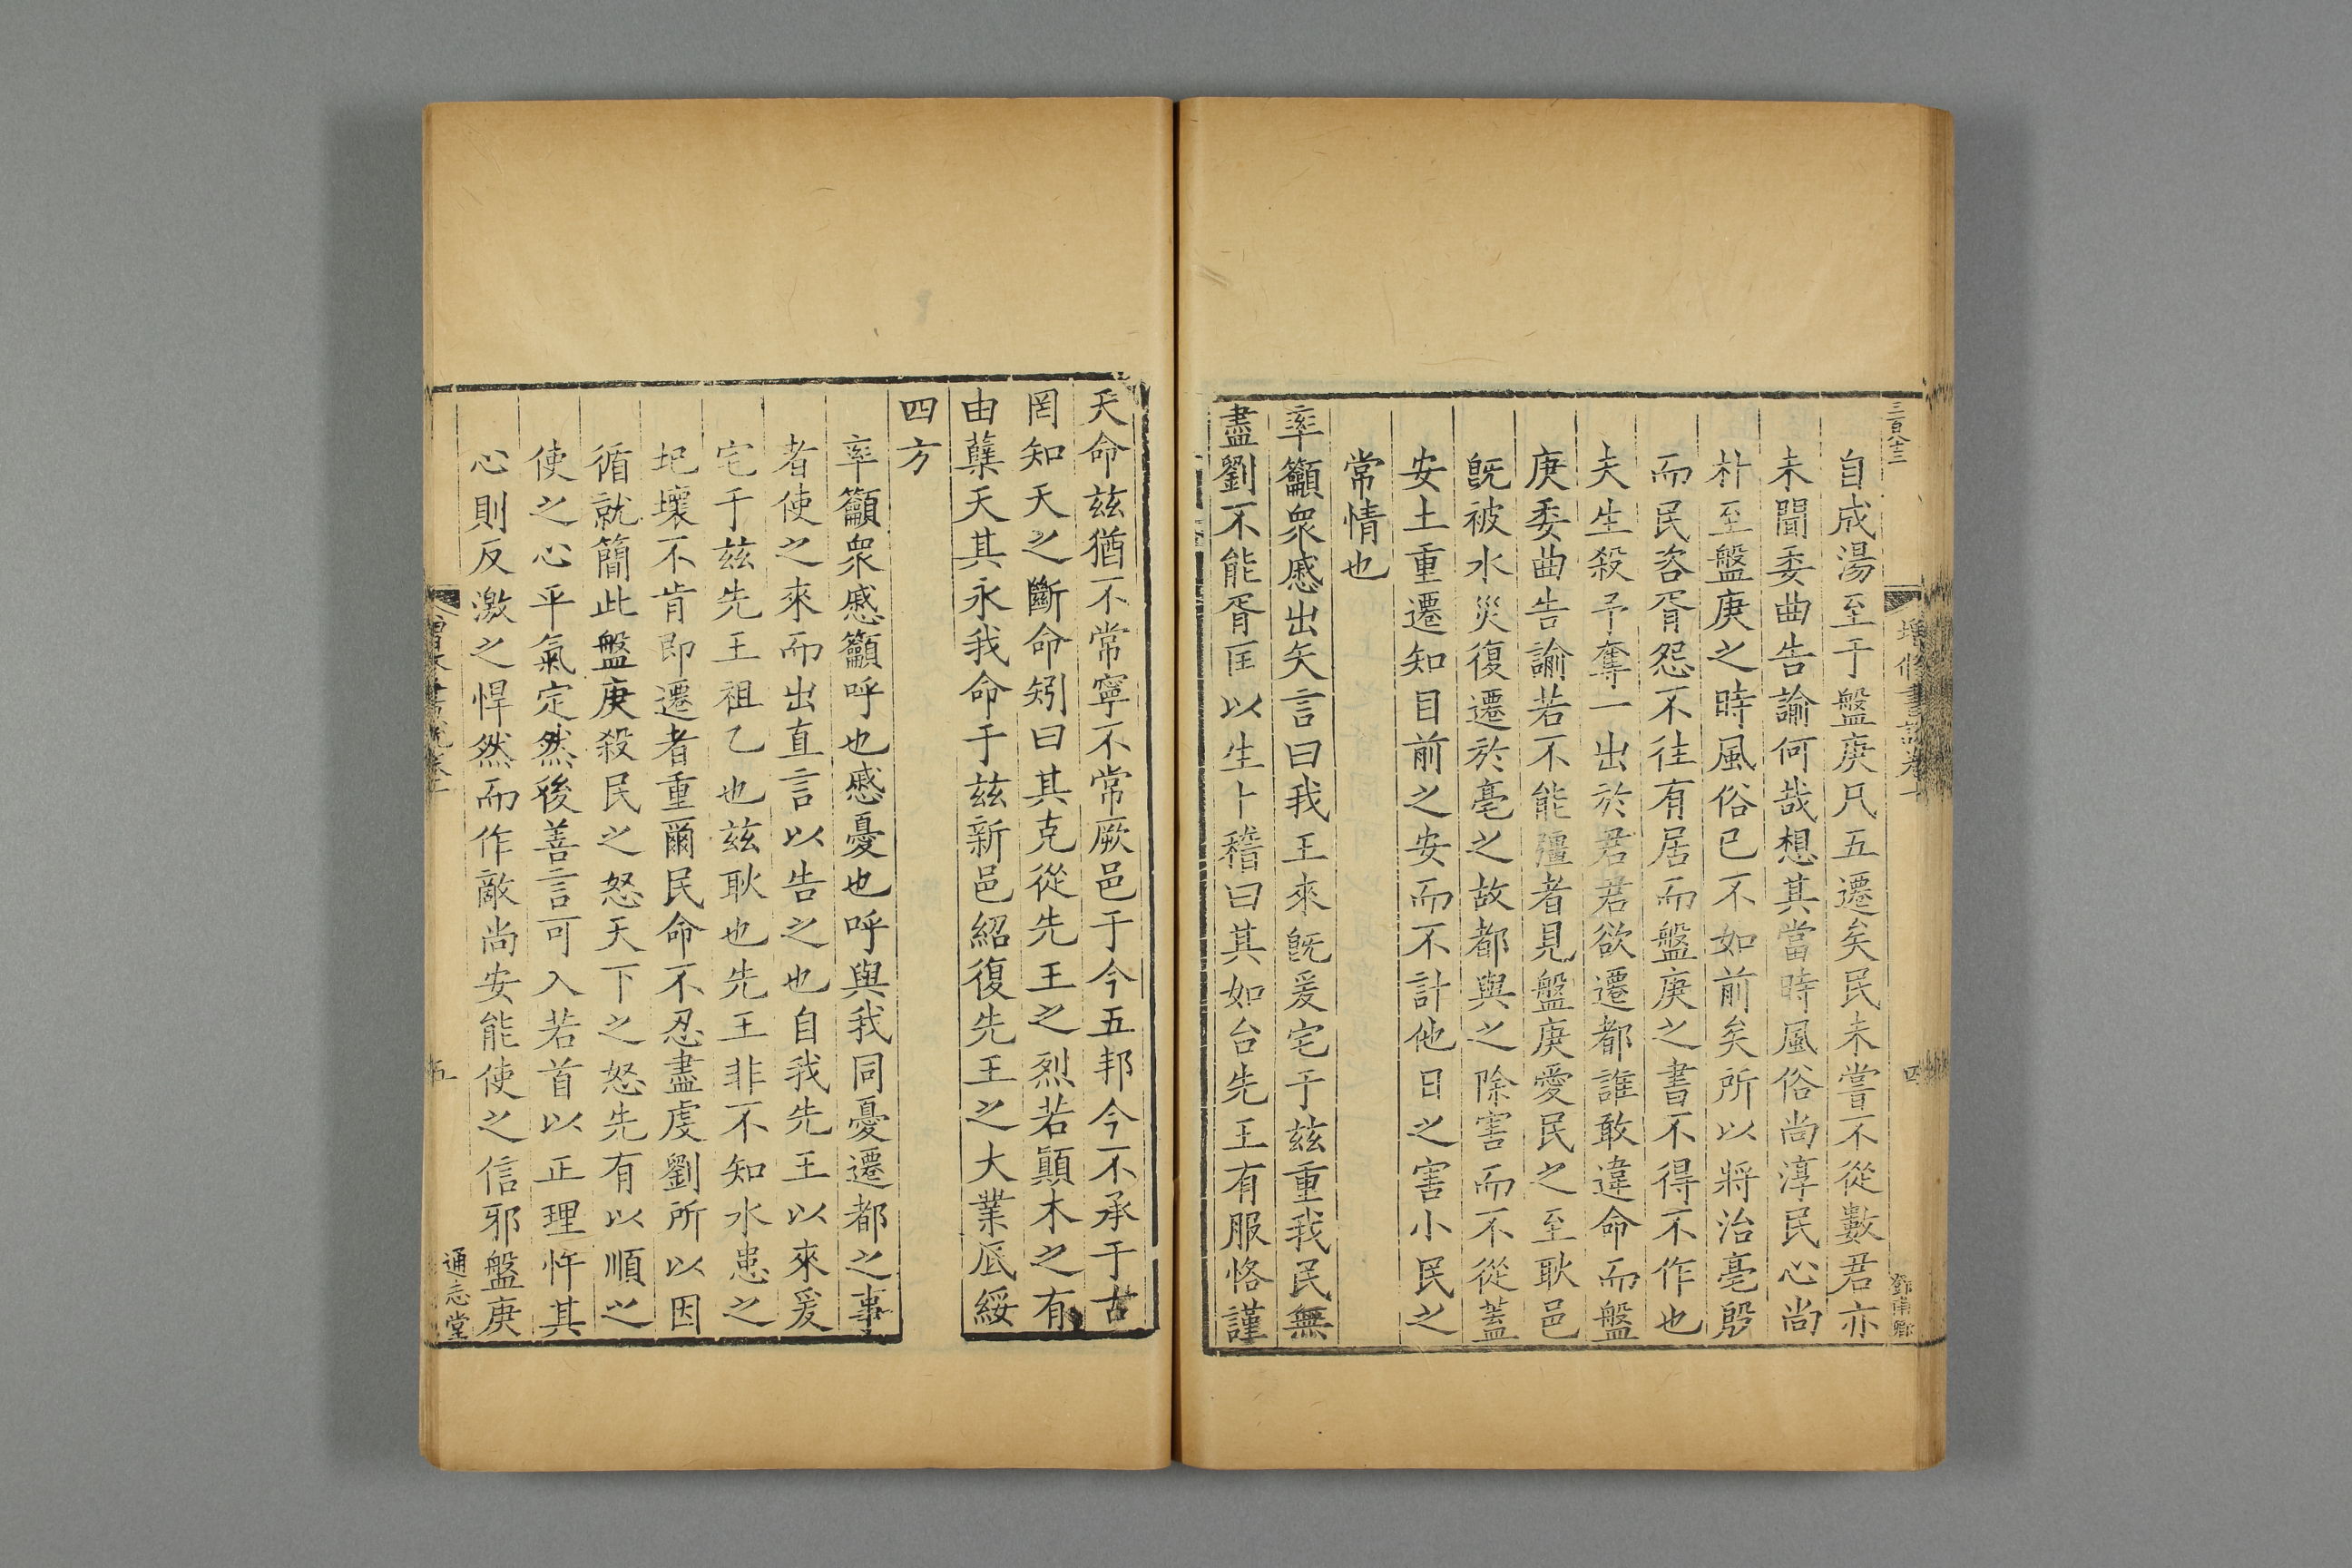 三百八十三
增修書說卷十
四
鄧南卿
自成湯至于盤庚凡五遷矣民未嘗不從數君亦
未聞委曲告諭何哉想其當時風俗尚淳民心尚
朴至盤庚之時風俗已不如前矣所以將治亳殷
而民咨胥怨不往有居而盤庚之書不得不作也
夫生殺予奪一出於君君欲遷都誰敢違命而盤
庚委曲告諭若不能彊者見盤庚愛民之至耿邑
旣被水災復遷於亳之故都與之除害而不從蓋
安土重遷知目前之安而不計他日之害小民之
常情也
率籲衆慼出矢言曰我王來旣爰宅于茲重我民無
盡劉不能胥匡以生卜稽曰其如台先王有服恪謹
天命茲猶不常寧不常厥邑于今五邦今不承于古
罔知天之斷命矧曰其克從先王之烈若顚木之有
由蘖天其永我命于茲新邑紹復先王之大業厎綏
四方
率籲衆慼籲呼也慼憂也呼與我同憂遷都之事
者使之來而出直言以告之也自我先王以來爰
宅于茲先王祖乙也茲耿也先王非不知水患之
圯壞不肯即遷者重爾民命不忍盡虔劉所以因
循就簡此盤庚殺民之怒天下之怒先有以順之
使之心平氣定然後善言可入若首以正理忤其
心則反激之悍然而作敵尚安能使之信邪盤庚
五
通志堂